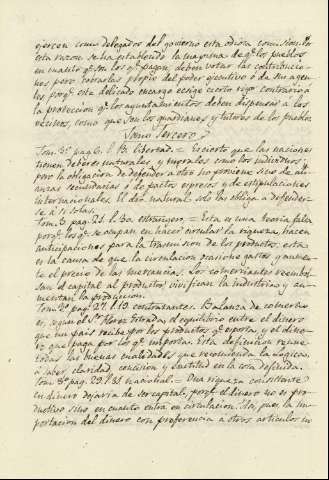 gercen como delegados del govierno esta odiosa comision. Por
esta razon se ha establecido la maxima de qe. los pueblos
en cuanto qe. son los qe. pagan, deben votar las contribucio-
nes pero cobrarlas propio del poder ejecutivo ó de sus agen-
tes porqe. este delicado encargo ecsige cierto rigor contrario á
la proteccion qe. los ayuntamientos deben dispensar a los
vecinos, como que son los guardianes y tutores de los pueblos.
Tomo Tercero
Tom. 3º. pag. 6. l. 13. libertad. = Es cierto que las naciones
tienen deberes naturales, y morales como los individuos;
pero la obligacion de defender a otro no proviene sino de ali-
anzas secundarias ó de pactos espresos y de estipulaciones
internacionales. El dro. natural solo las obliga a defender-
se á si solas.
Tom. 3. pag. 21. l. 30. estrangero. = Esta es una teoria falsa
porqe. los qe. se ocupan en hacer circular la riqueza, hacen
anticipaciones para la transmision de los productos: esta
es la causa de que la circulacion ocasione gastos y aumen-
te el precio de las mercancias. Los comerciantes reembol-
san el capital al productor, vivifican la industria y au-
mentan la produccion.
Tom. 3º. pag. 27. l. 10. contratantes. Balanza de comercio
es, segun el Sr. Florez Estrada, el equilibrio entre el dinero
que un pais recibe por los productos qe. esporta, y el dine-
ro que paga por los qe. importa. Esta definicion reune
todas las buenas cualidades que recomienda la logica:
á saber, claridad, concision y ecsactitud en la cosa definida.
Tom. 3º. pag. 29. l. 31. nacional. = Una riqueza consistente
en dinero dejaria de ser capital, porqe. el dinero no es pro-
ductivo sino en cuanto entra en circulacion. Asi, pues, la im-
portacion del dinero con preferencia a otros articulos no